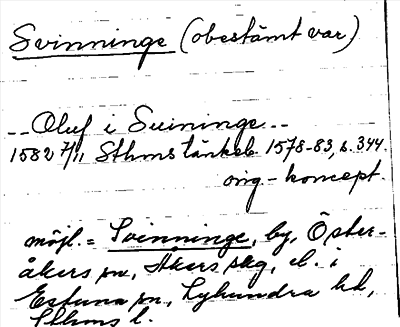 Svinninge (obestämt var)
-- Oluf i Suininge --
1582 7/11 Sthms tänkeb 1578-83, s. 344.
orig.-koncept.
möjl. = Svinninge, by, Öster-
åkers sn, Åkers skg, el. i
Estuna sn, Lyhundra hd,
Sthms l.